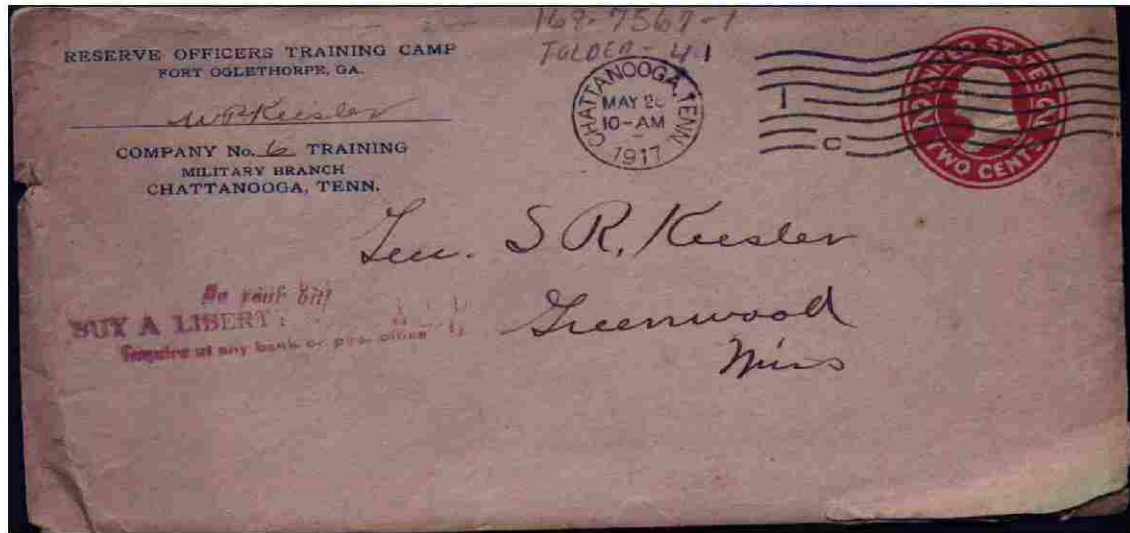 169-7567-1
FOLDER - 41
RESERVE OFFICERS TRAINING CAMP
FORT OGLETHORPE, GA.
W P Keesler
COMPANY No. 6 TRAINING
MILITARY BRANCH
CHATTANOOGA, TENN.
CHATTANOOGA, TENN
MAY 2
10-AM
1917
1
C
UNITED STATES
TWO CENTS
S R, Keesler
Greenwood
Miss
Do your bit!
BUY A LIBERT
Enquire at any bank or post office